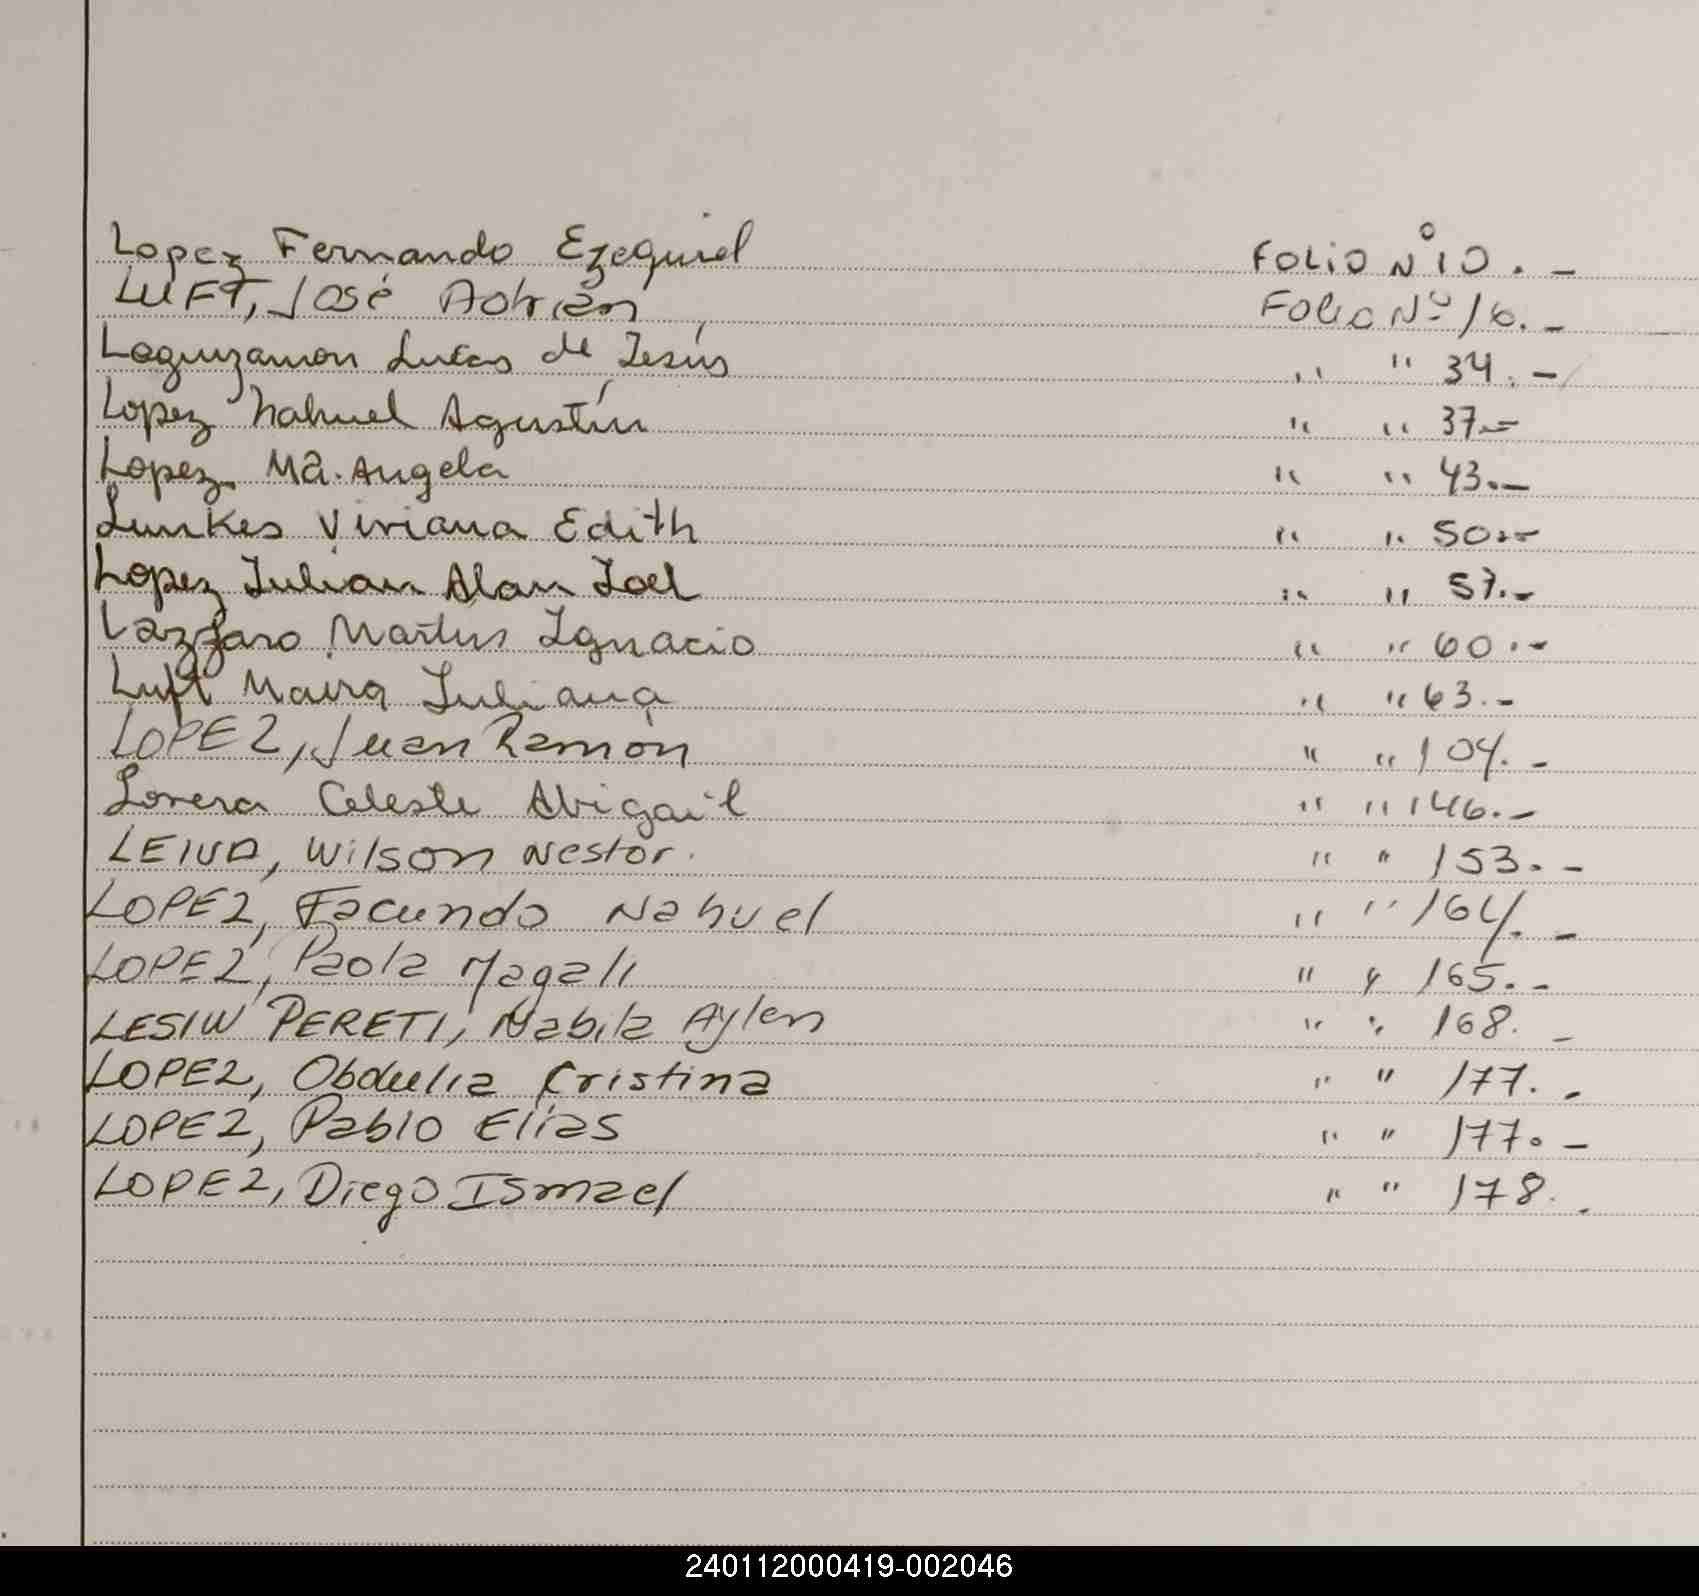 Lopez Fernando Ezequiel FOLIO Nº 10. -
LUFT, José Adrián Folio Nº 16. -
Leguizamon Lucas de Jesús " " 34. -
Lopez Nahuel Agustín " " 37. -
Lopez Mª. Angela " " 43. -
Lunkes Viviana Edith " " 50. -
Lopez Julian Alan Joel " " 57. -
Lazzaro Martín Ignacio " " 60. -
Luft Maira Juliana " " 63. -
LOPEZ, Juan Ramón " " 104. -
Lovera Celeste Abigail " " 146. -
LEIVA, Wilson Nestor. " " 153. -
LOPEZ, Facundo Nahuel " " 164. -
LOPEZ, Paola Magali " " 165. -
LESIW PERETI, Nabila Aylen " " 168. -
LOPEZ, Obdulia Cristina " " 177. -
LOPEZ, Pablo Elías " " 177. -
LOPEZ, Diego Ismael " " 178. -
240112000419-002046